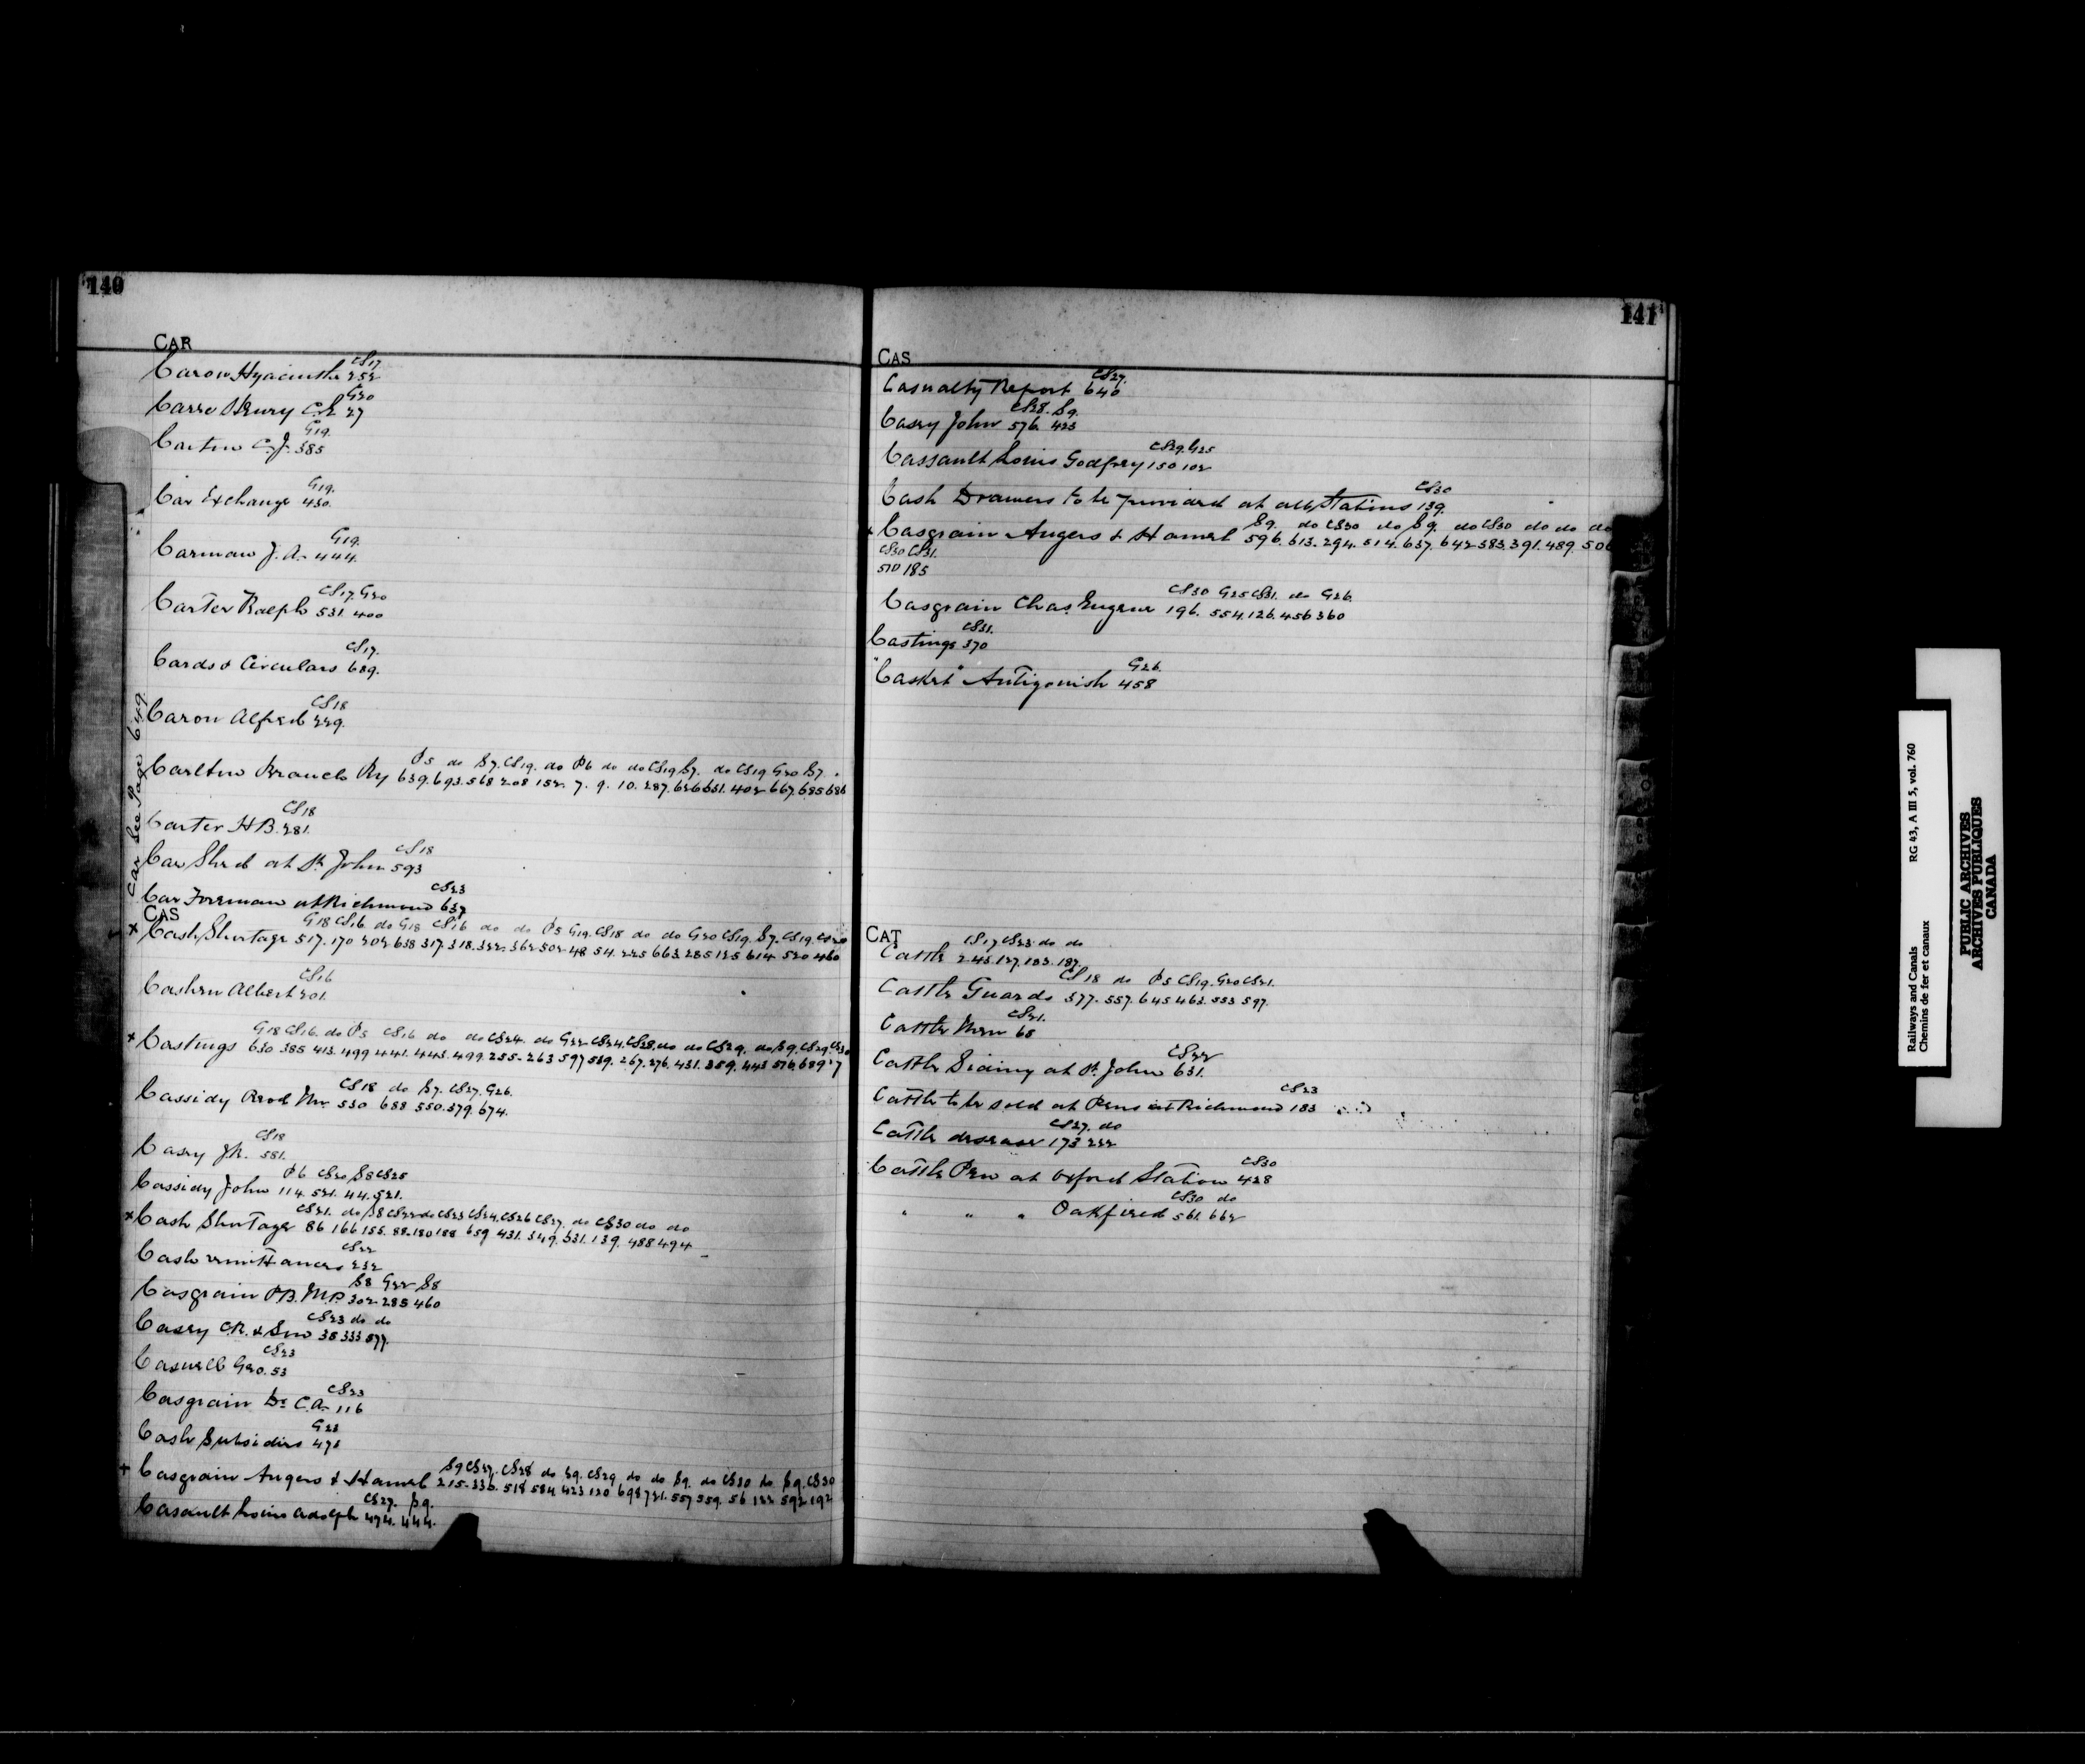 140
CAR
CS17
Caron Hyacinthe 252
G20
Carre Henry C.E. 27
G19.
Carten C.J. 385
G19.
Car Exchange 430.
G19.
Carman J.A. 444.
CS17. G20
Carter Ralph 531. 400
CS17.
Cards & Circulars 689.
CS18
Caron Alfred 229.
Car See Page 649.
P5 do S7. CS19. do P6 do do CS19 S7. do CS19 G20 S7.
Carlton Branch Ry 639. 693. 568 208 152. 7. 9. 10. 287. 626 631. 402 667. 685 686
CS18
Carter H.B. 281.
CS18
Car Shed at St. John 593
CS23
Car Foreman at Richmond 637
CAS
G18 CS16 do G18 CS16 do do P5 G19. CS18 do do G20 CS19. S7. CS19. CS20
x Cash Shortage 517. 170 202 638 317. 318. 322. 362 502. 48 54. 225 663. 285 125 614. 520 460
CS16
Cashen Albert 201.
G18 CS16. do P5 CS16 do do CS24. do G22 CS24. CS28. do do CS29. do S9. CS29. CS30
x Castings 630 385 413. 499 441. 443. 499. 255. 263 597 589. 267. 276. 431. 359. 445 576. 689 7
CS18 do S7. CS27. G26.
Cassidy Prod Mr. 530 688 550. 379. 674.
CS18
Casey J.R. 581.
P6 CS20 S8 CS25
Cassidy John 114. 521. 44. 521.
CS21. do S8 CS22 do CS23 CS24. CS26 CS27. do CS30 do do
x Cash Shortage 86 166 155. 88. 180 188 659 431. 349. 531. 139. 488 494
CS22
Cash remittances 232
S8 G22 S8
Casgrain P.B. M.P. 302. 285 460
CS23 do do
Casey C.R. & Son 38 333 577.
CS23
Caswell Geo. 53
CS23
Casgrain Dr. C.A. 116
G23
Cash Subsidies 478
S9 CS27. CS28 do S9. CS29 do do S9. do CS30 do S9. CS30
+ Casgrain Angers & Hamel 215. 336. 518 584 423 120 698 721. 557 559. 56 122 592 192
CS27. S9.
Casault Louis Adolph 474. 444.
141
CAS
CS27.
Casualty Report 640
CS28. S9.
Casey John 576. 423
CS29. G25
Cassault Louis Godfrey 150 102
CS30
Cash Drawers to be provided at all Stations 139.
S9. do CS30 do S9. do CS30 do do do
x Casgrain Angers & Hamel 596. 613. 294. 514. 637. 642 383. 391. 489. 506
CS30 CS31.
510 185
CS30 G25 CS31. do G26.
Casgrain Chas Eugene 196. 554. 126. 456 360
CS31.
Castings 370
G26.
"Casket" Antigonish 458
CAT
CS17 CS23 do do
Cattle 245. 127. 183. 187.
CS18 do P5 CS19. G20 CS21.
Cattle Guards 377. 557. 645 463. 553 597.
CS21.
Cattle Men 65
CS22
Cattle Siding at St. John 631.
CS23
Cattle to be sold at Pens at Richmond 183
CS27. do
Cattle disease 173 222
CS30
Cattle Pen at Oxford Station 428
CS30 do
" " " Oakfield 561. 662
Railways and Canals RG 43, A III 5, vol. 760
Chemins de fer et canaux
PUBLIC ARCHIVES
ARCHIVES PUBLIQUES
CANADA